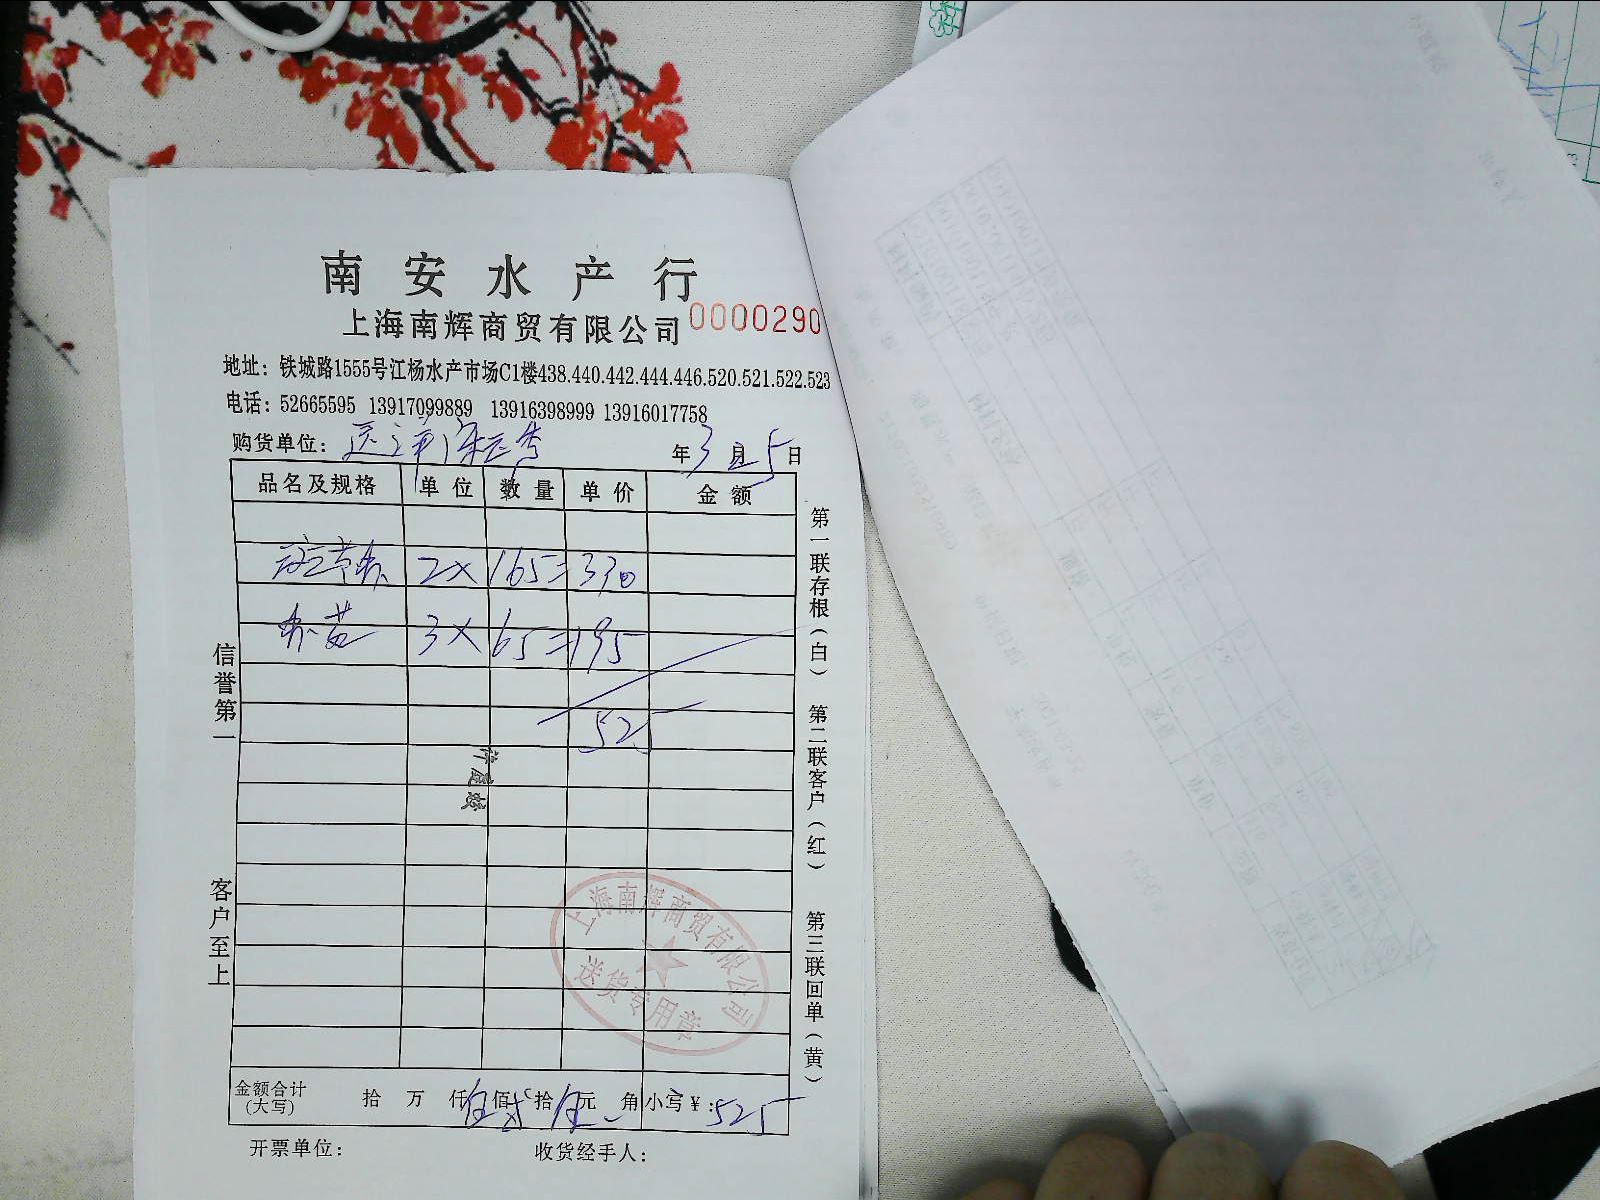 南安水产行
上海南辉商贸有限公司 0000290
地址：铁城路1555号江杨水产市场C1楼438.440.442.444.446.520.521.522.523
电话：52665595 13917099889 13916398999 13916017758
购货单位： 年3月5日
品名及规格 单位 数量 单价 金额
2× 165=330
3× 65=195
525
许
信誉第一
客户至上
第一联存根（白） 第二联客户（红） 第三联回单（黄）
上海南辉商贸有限公司
送货专用章
金额合计（大写） 拾 万 仟伍佰贰拾伍元 角 小写¥：525
开票单位： 收货经手人：